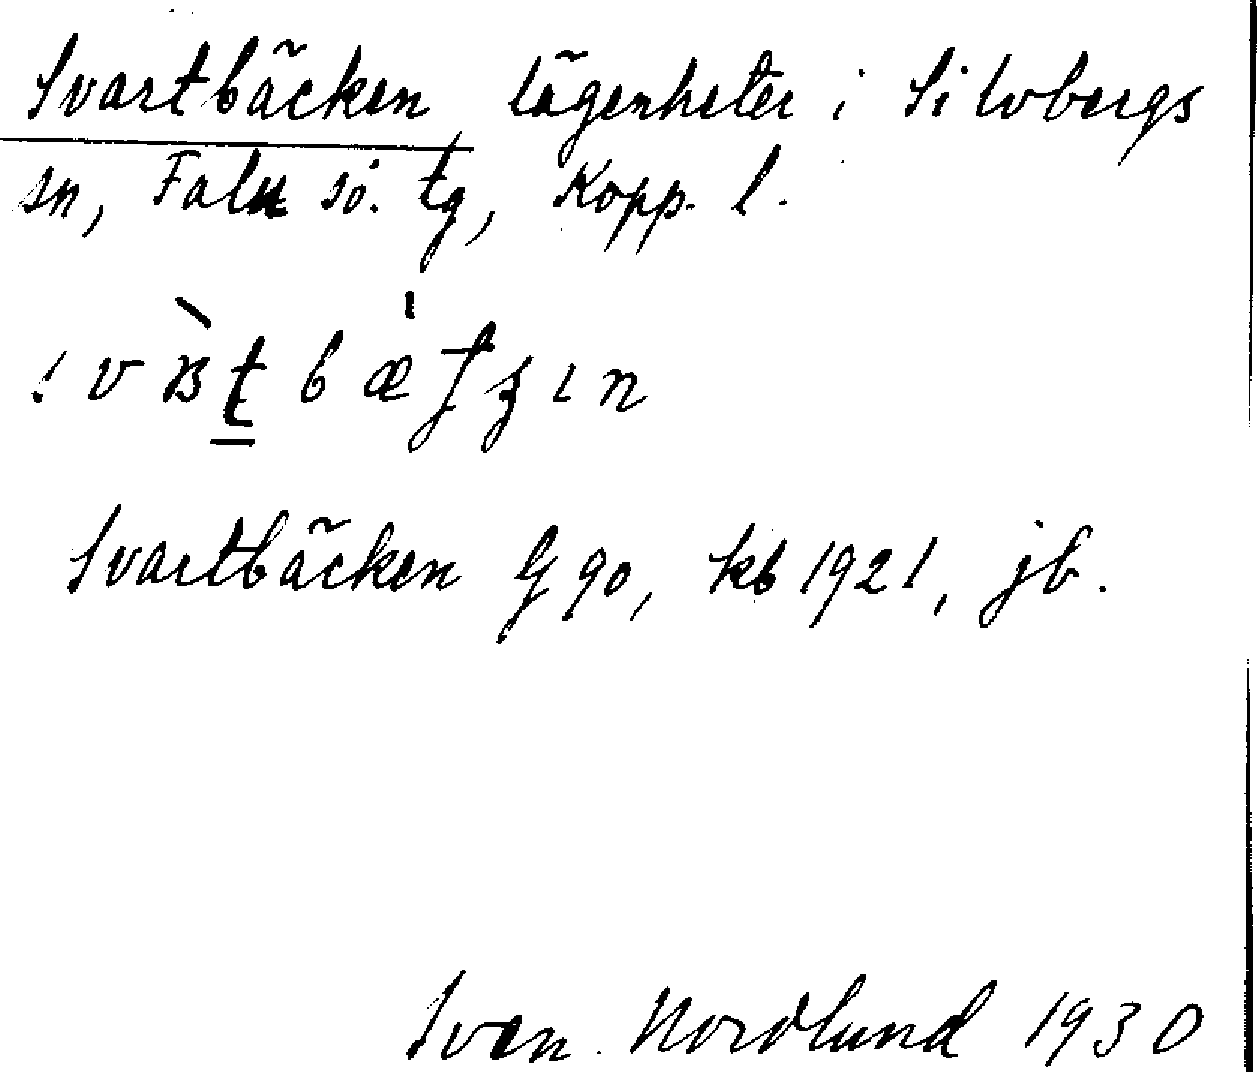 Svartbäcken lägenheter i Silvbergs
sn, Falu sö. tg, Kopp. l.
Svartbäcken G 90, kb 1921, jb.
Sven Nordlund 1930